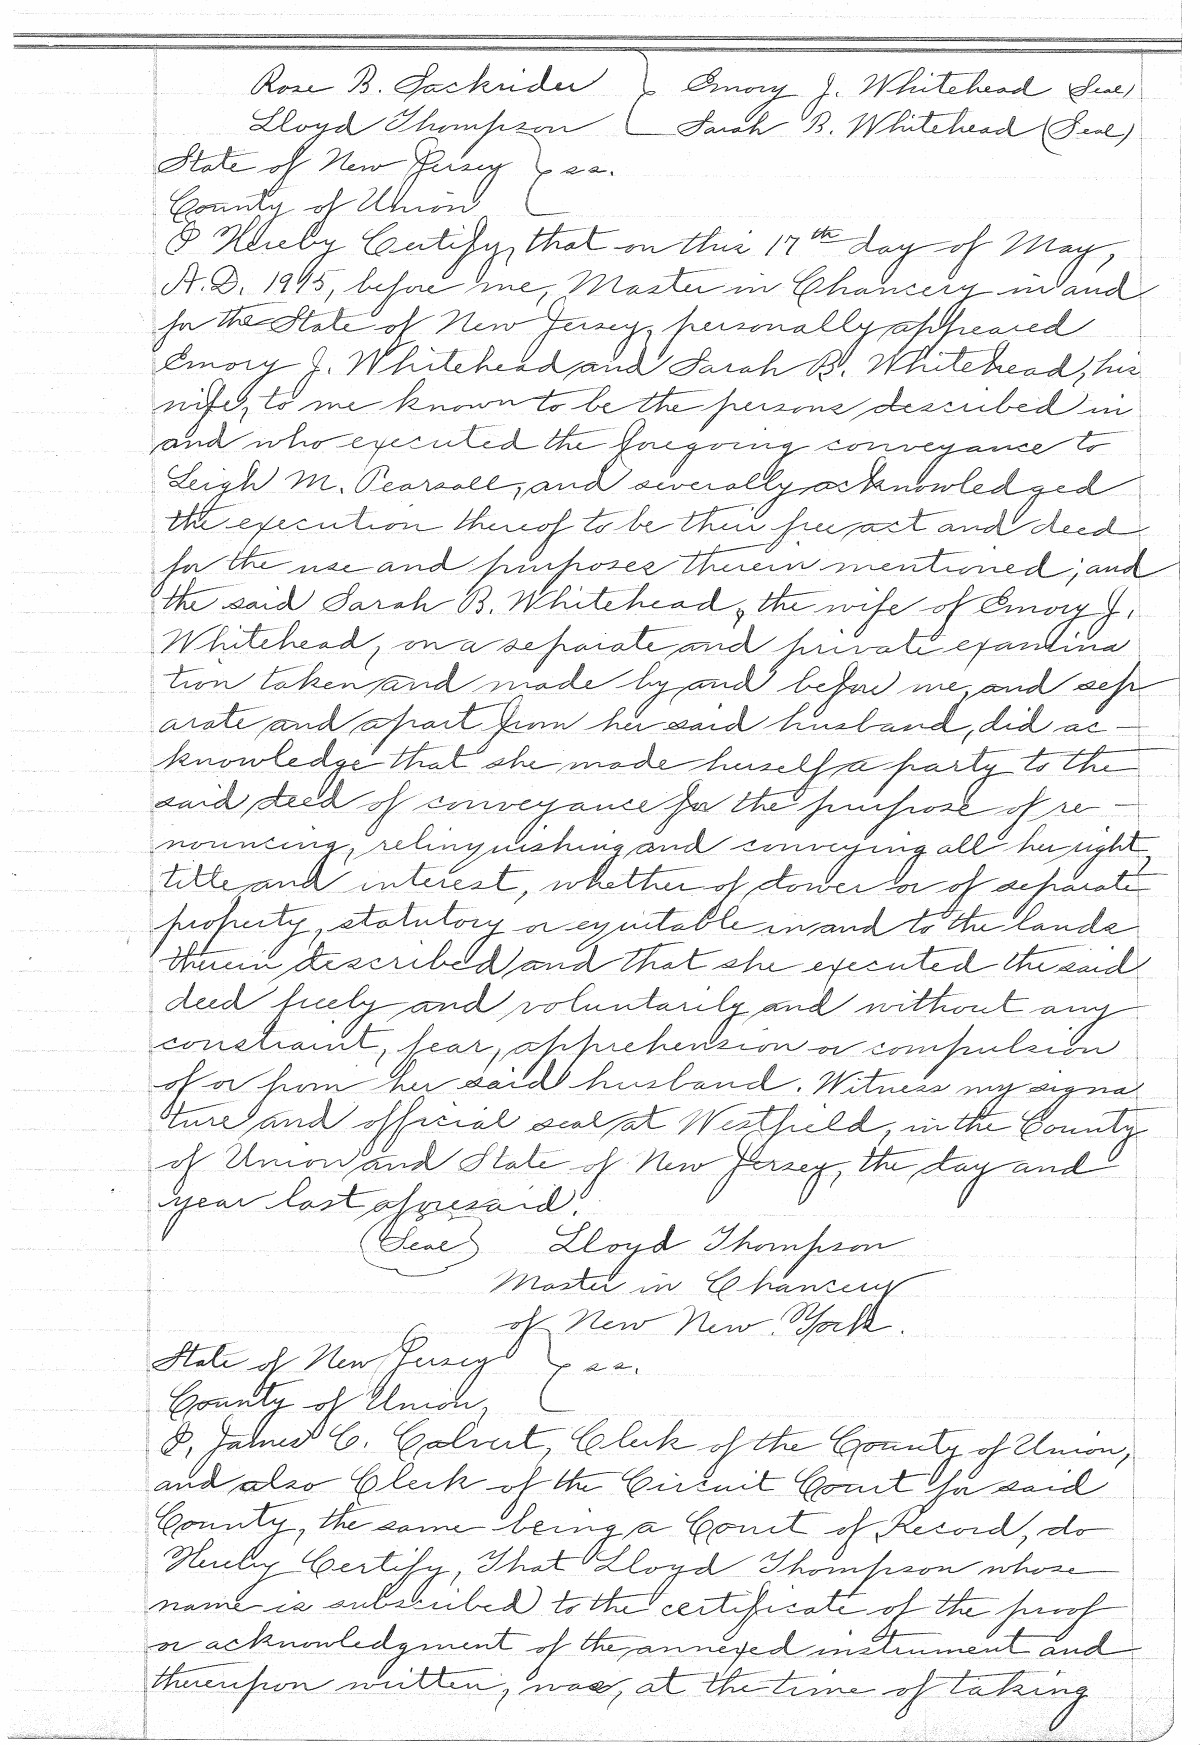 Rose B. Sackrider } Emory J. Whitehead (Seal)
Lloyd Thompson } Sarah B. Whitehead (Seal)
State of New Jersey } ss.
County of Union
I Hereby Certify, that on this 17th day of May,
A.D. 1915, before me, Master in Chancery in and
for the State of New Jersey, personally appeared
Emory J. Whitehead and Sarah B. Whitehead, his
wife, to me known to be the persons described in
and who executed the foregoing conveyance to
Leigh M. Pearsall, and severally acknowledged
the execution thereof to be their free act and deed
for the use and purposes therein mentioned; and
the said Sarah B. Whitehead, the wife of Emory J.
Whitehead, on a separate and private examina
tion taken and made by and before me, and sep
arate and apart from her said husband, did ac-
knowledge that she made herself a party to the
said deed of conveyance for the purpose of re-
nouncing, relinquishing and conveying all her right,
title and interest, whether of dower or of separate
property, statutory or equitable in and to the lands
therein described and that she executed the said
deed freely and voluntarily and without any
constraint, fear, apprehension or compulsion
of or from her said husband. Witness my signa
ture and official seal at Westfield, in the County
of Union and State of New Jersey, the day and
year last aforesaid.
(Seal) Lloyd Thompson
Master in Chancery
of New New York.
State of New Jersey } ss.
County of Union,
I, James C. Calvert, Clerk of the County of Union,
and also Clerk of the Circuit Court for said
County, the same being a Court of Record, do
Hereby Certify, That Lloyd Thompson whose
name is subscribed to the certificate of the proof
or acknowledgment of the annexed instrument and
thereupon written, was, at the time of taking